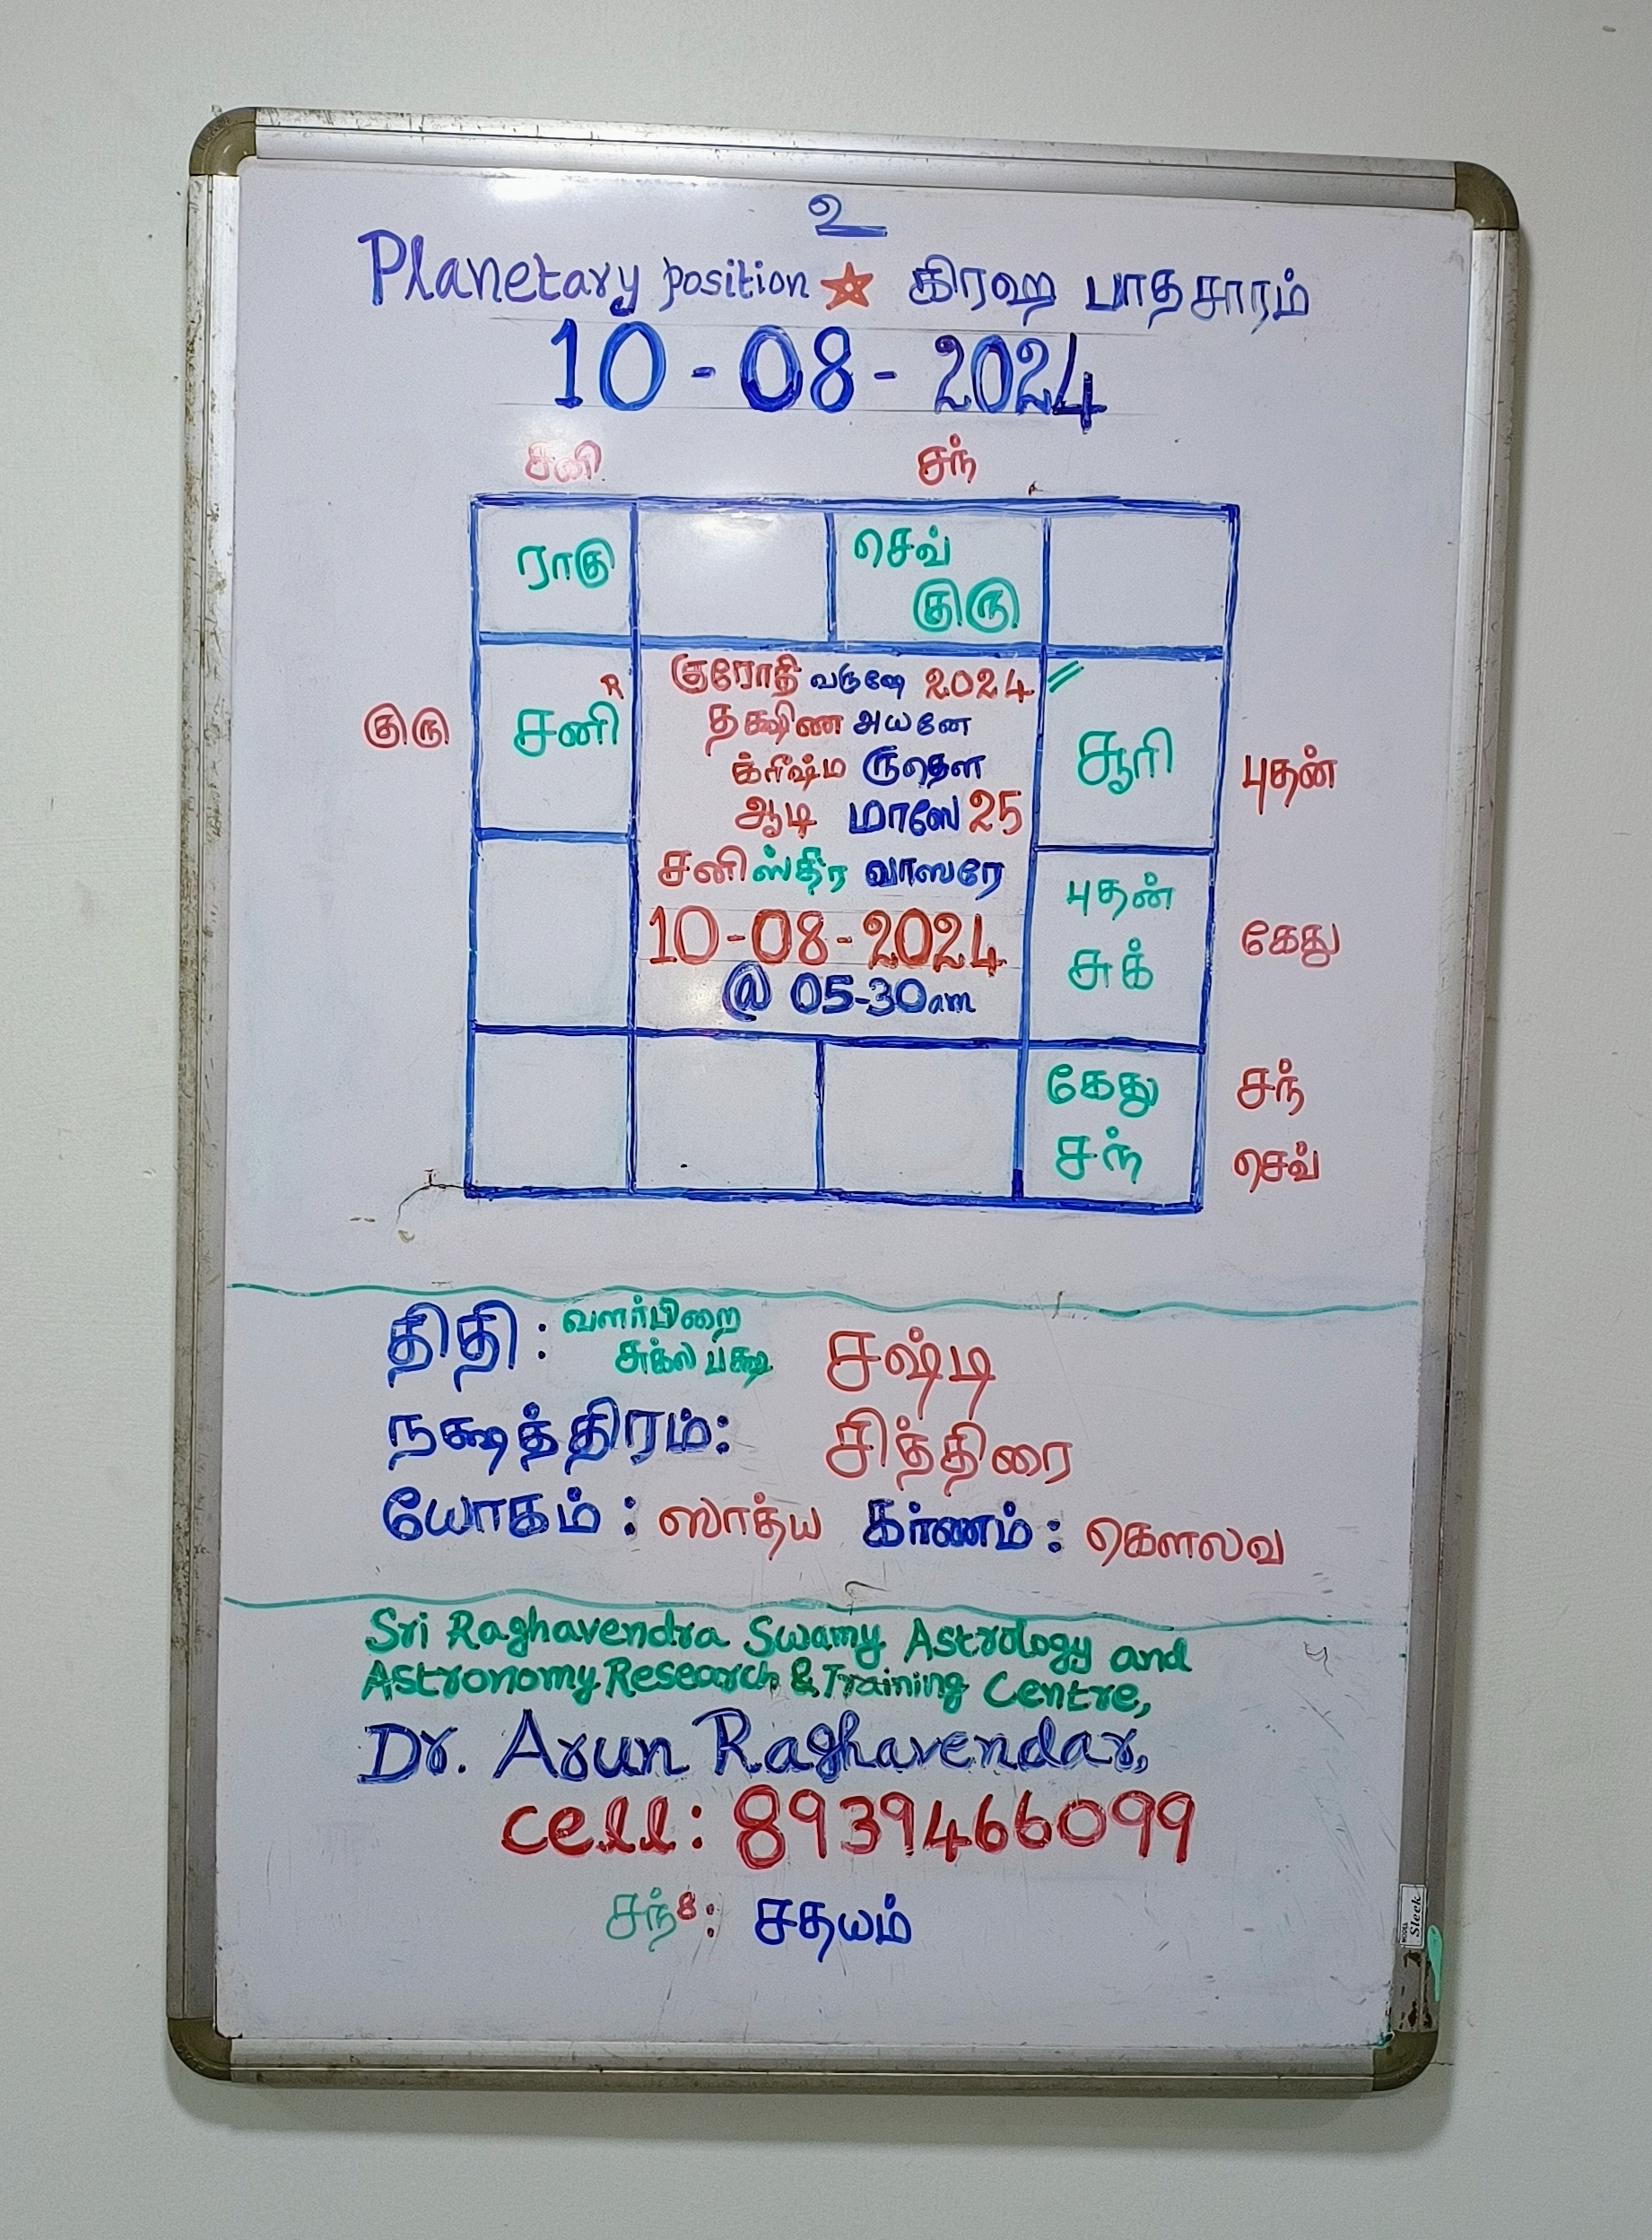 உ
Planetary position ★ கிரஹ பாதசாரம்
10-08-2024
சனி சந்
ராகு செவ்
குரு
குரு சனி R
குரோதி வருஷே 2024
தக்ஷிண அயனே
க்ரீஷ்ம ருதௌ
ஆடி மாஸே 25
சனி ஸ்திர வாஸரே
10-08-2024
@ 05-30am
சூரி புதன்
புதன் கேது
சுக்
கேது சந்
சந் செவ்
திதி: வளர்பிறை
சுக்ல பக்ஷ சஷ்டி
நக்ஷத்திரம்: சித்திரை
யோகம்: ஸாத்ய கர்ணம்: கௌலவ
Sri Raghavendra Swamy Astrology and
Astronomy Research & Training Centre,
Dr. Arun Raghavendar,
cell: 8939466099
சந் 8: சதயம்
MODEL Sleek